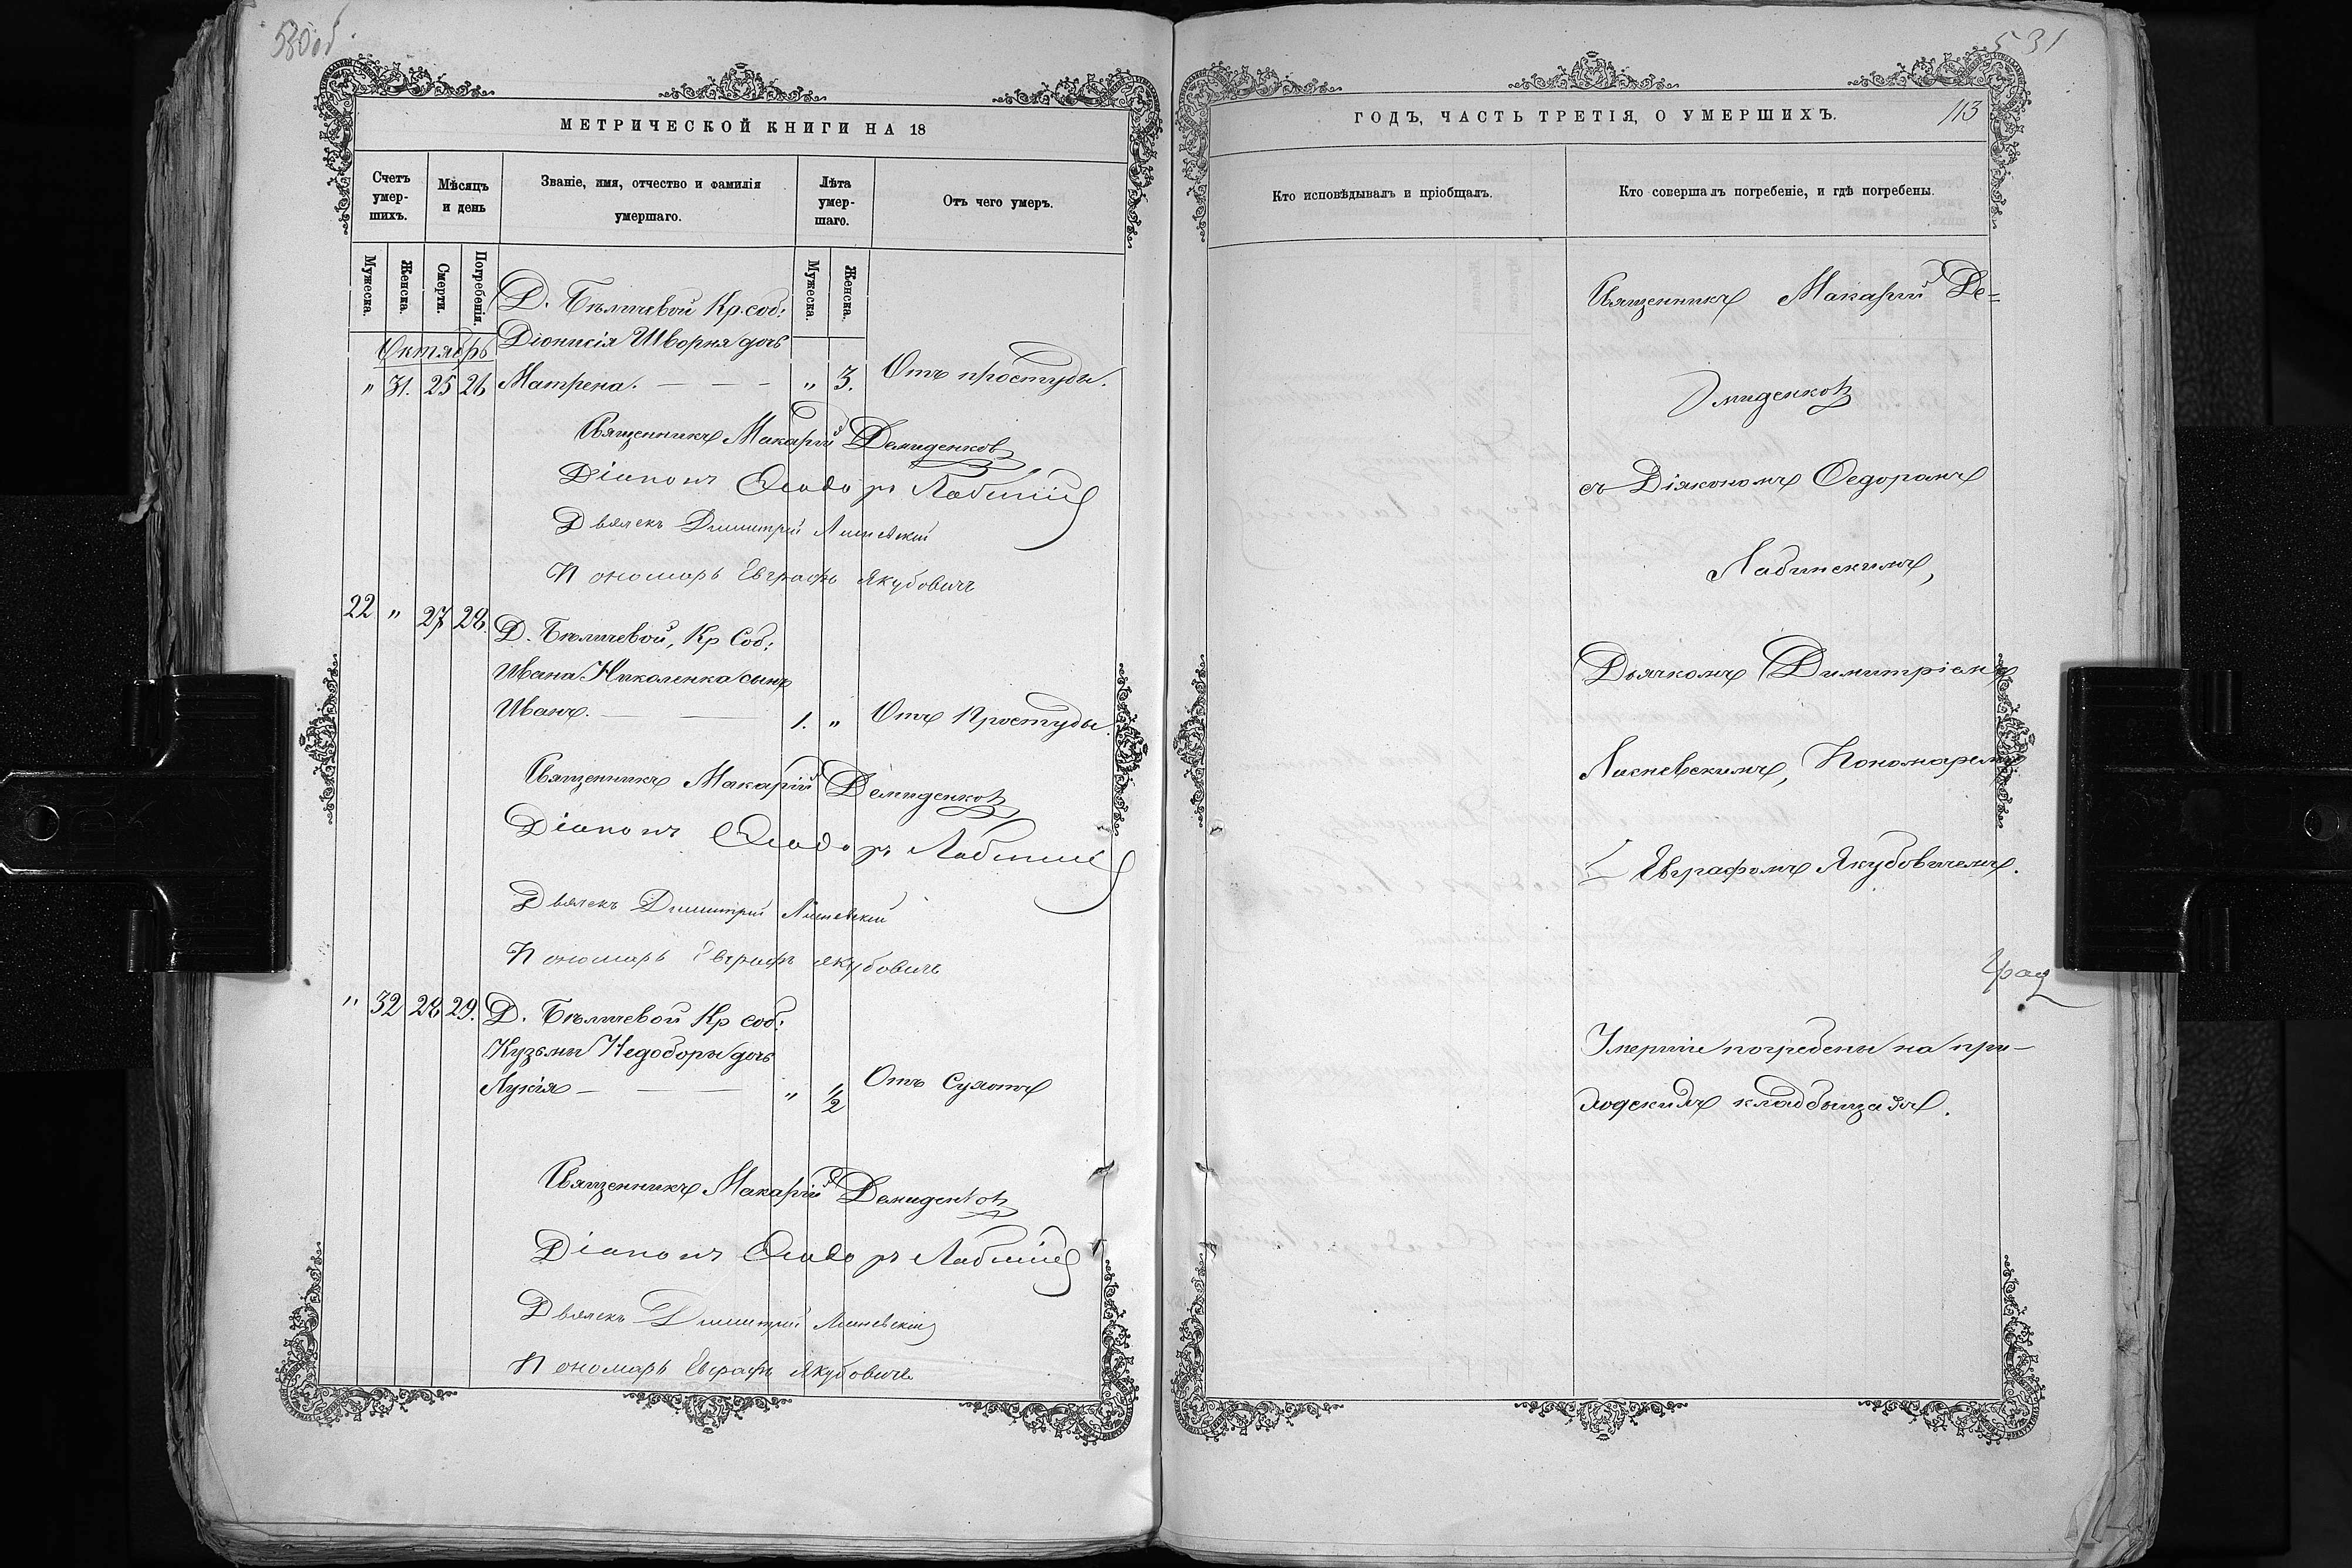 530об.
МЕТРИЧЕСКОЙ КНИГИ НА 18
Счетъ умер-шихъ.
Мѣсяцъ и день
Званіе, имя, отчество и фамилія умершаго.
Лѣта умер-шаго.
Отъ чего умеръ.
Мужеска.
Женска.
Смерти.
Погребенія.
Мужеска.
Женска.
Октябрь
Д. Бѣличевой Кр. соб:
Діонисія Шворня дочь
" 31. 25 26 Матрена. — — - " 3. Отъ простуды.
Священникъ Макарій Демиденковъ
Діаконъ Ѳеодоръ Лабинскій
Дьячекъ Димитрій Лисневскій
Пономарь Евграфъ Якубовичъ
22 " 27 28. Д. Бѣличевой, Кр Соб:
Ивана Николенка сынъ
Иванъ. — — 1. " Отъ Простуды.
Священникъ Макарій Демиденковъ
Діаконъ Ѳеодоръ Лабинскій
Дьячекъ Димитрій Лисневскій
Пономарь Евграфъ Якубовичъ
" 32 28 29. Д. Бѣличевой Кр соб:
Кузьмы Недоборы дочь
Лукія — — " 1/2 Отъ Сухотъ
Священникъ Макарій Демиденковъ
Діаконъ Ѳеодоръ Лабинскій
Дьячекъ Димитрій Лисневскій
Пономарь Евграфъ Якубовичъ
531
ГОДЪ, ЧАСТЬ ТРЕТІЯ, О УМЕРШИХЪ.
113
Кто исповѣдывалъ и пріобщалъ.
Кто совершалъ погребеніе, и гдѣ погребены.
Священникъ Макарій Де=
миденковъ
съ Діякономъ Ѳедоромъ
Лабинскимъ,
Дьячкомъ Димитріемъ
Лисневскимъ, Пономаремъ
Евграфомъ Якубовичемъ.
Умершіе погребены на при-
ходскихъ кладбищахъ.